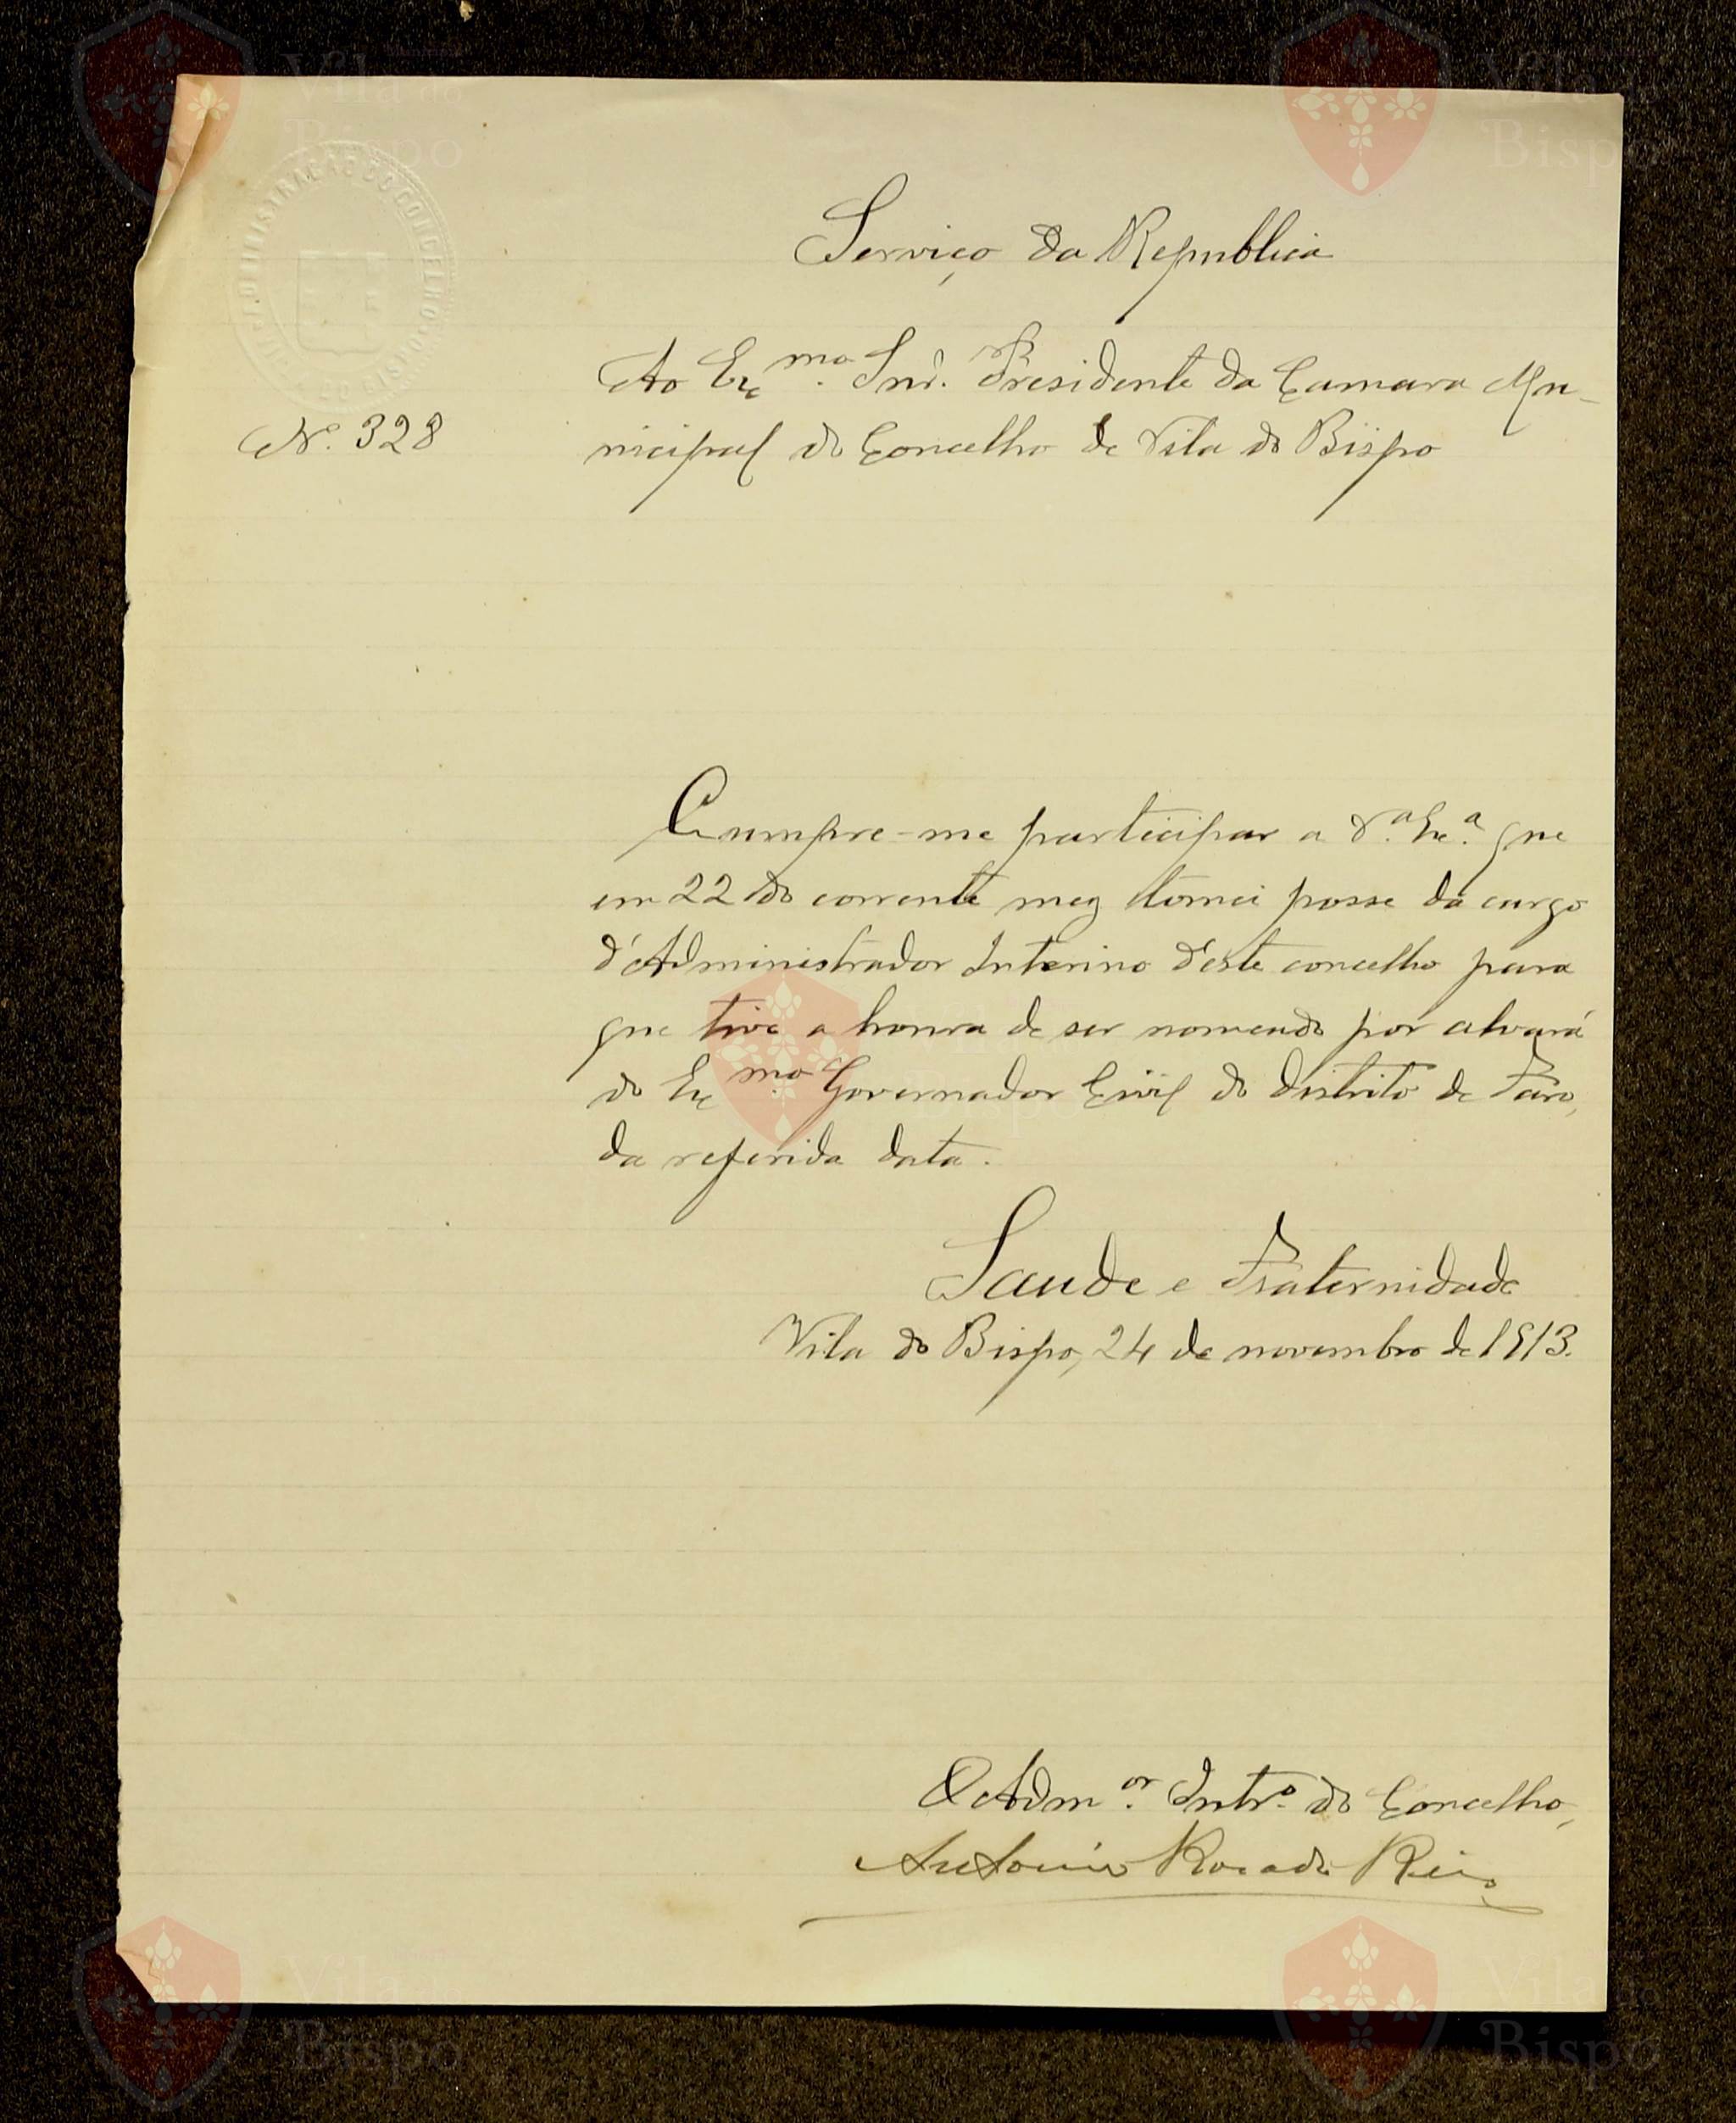 Serviço da Republica
Ao Exc.mo Snr. Presidente da Camara Mu-
nicipal do Concelho de Vila do Bispo
N.º 328
Cumpre-me participar a V.ª Ex.ª que
em 22 do corrente mez tomei posse do cargo
d'Administrador Interino d'este concelho para
que tive a honra de ser nomeado por alvará
do Exc.mo Governador Civil do distrito de Faro,
da referida data.
Saude e Fraternidade
Vila do Bispo, 24 de novembro de 1913.
O Adm.or Intr.º do Concelho,
Antonio Rocado Reis
Vila do
Bispo
Vila
Bispo
Vila
Bispo
Vila do
Bispo